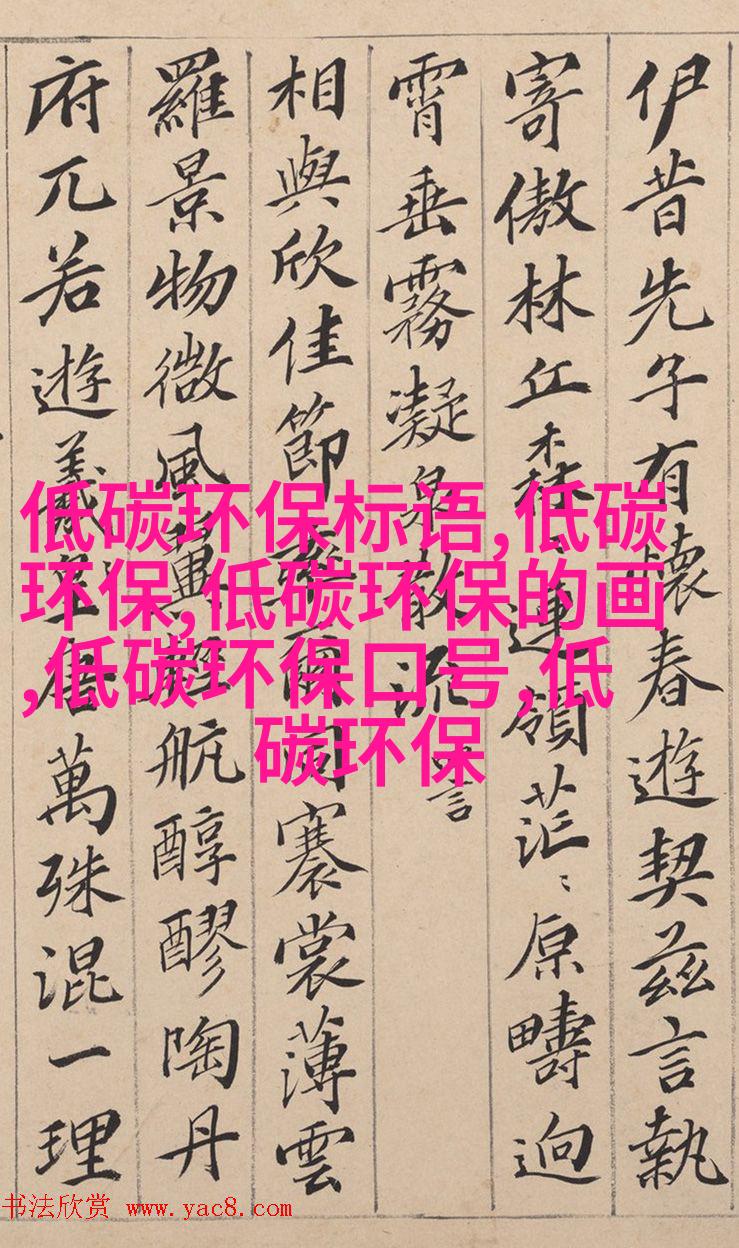 伊昔先子有懷春遊契茲言執
寄傲林丘森〻連嶺茫〻原疇迥
霄垂霧凝泉散流
相與欣佳節率爾同褰裳薄雲
羅景物微風翼輕航醇醪陶丹
府兀若遊羲皇唐萬殊混一理
低碳环保标语,低碳
环保,低碳环保的画
,低碳环保口号,低
碳环保
书法欣赏 www.yac8.com